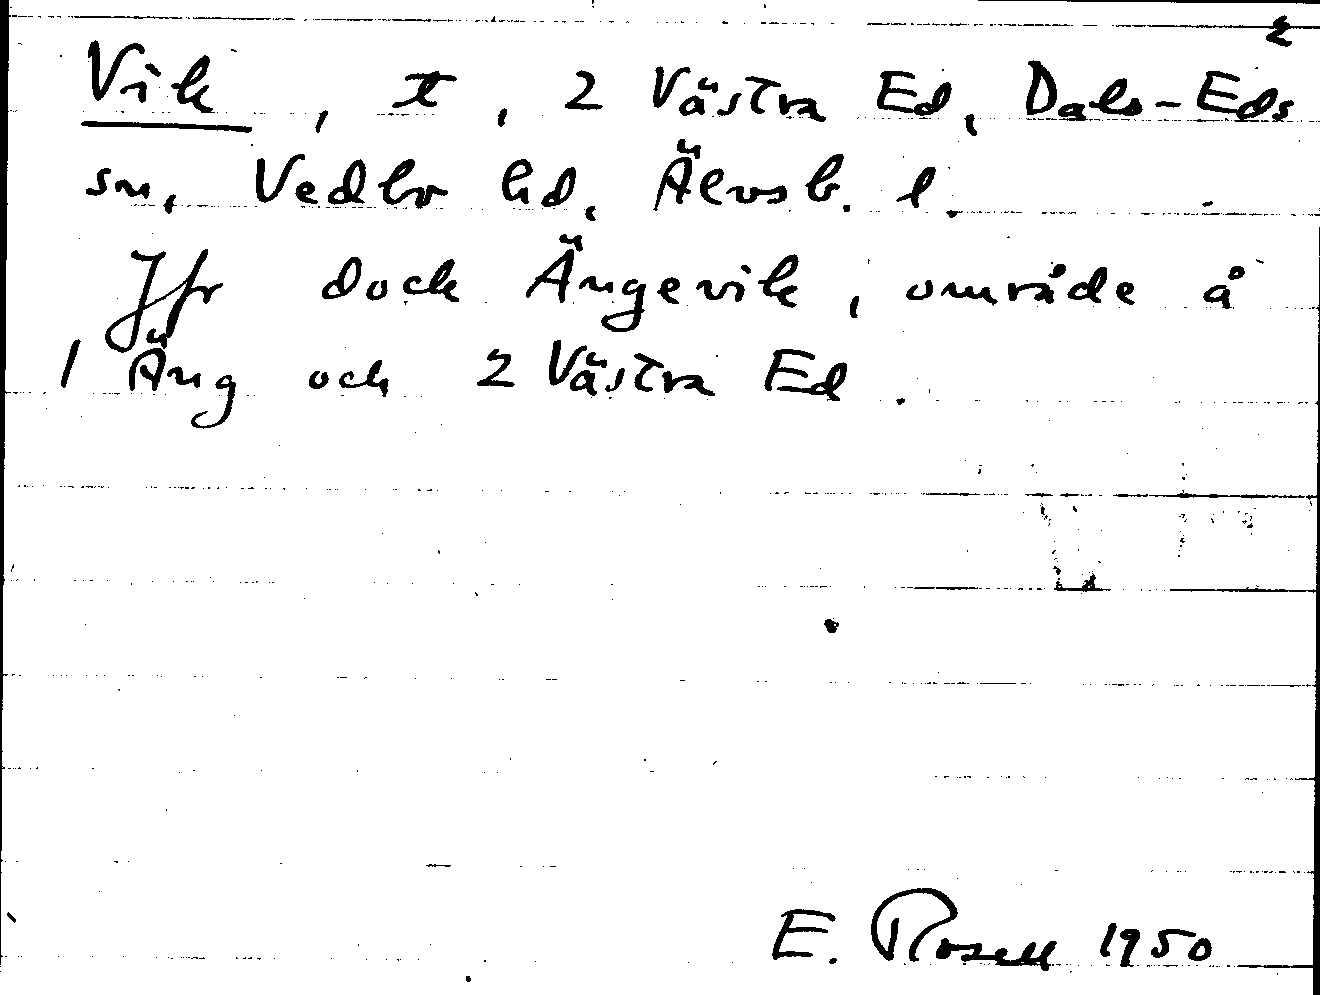 2
Vik, t, 2 Västra Ed, Dals-Eds
sn, Vedbo hd, Älvsb. l.
Jfr dock Ängevik, område å
1 Äng och 2 Västra Ed.
E. Rosell 1950